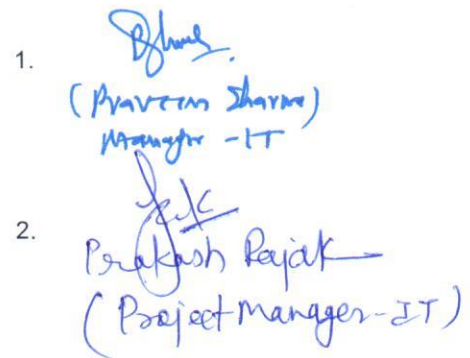 1.
(Praveen Sharma)
Manager - IT
2.
Prakash Rajak
(Project Manager - IT)